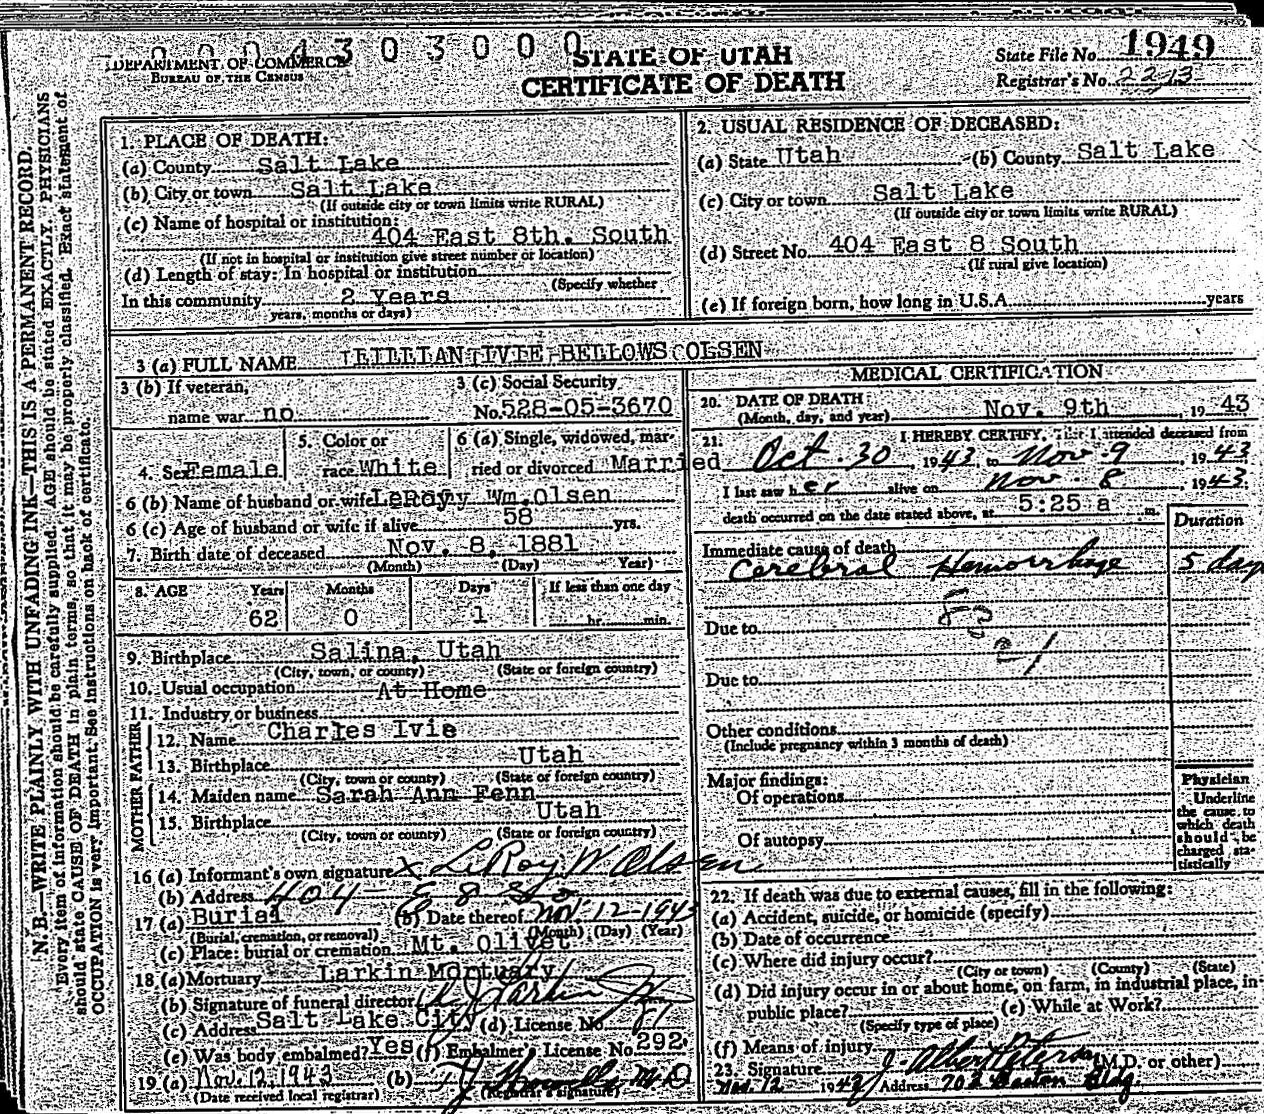 0004303000
DEPARTMENT OF COMMERCE
BUREAU OF THE CENSUS
STATE OF UTAH
CERTIFICATE OF DEATH
State File No. 1949
Registrar's No. 2213
N. B.—WRITE PLAINLY WITH UNFADING INK—THIS IS A PERMANENT RECORD.
Every item of information should be carefully supplied. AGE should be stated EXACTLY. PHYSICIANS
should state CAUSE OF DEATH in plain terms, so that it may be properly classified. Exact statement of
OCCUPATION is very important. See instructions on back of certificate.
1. PLACE OF DEATH:
(a) County Salt Lake
(b) City or town Salt Lake
(If outside city or town limits write RURAL)
(c) Name of hospital or institution:
404 East 8th. South
(If not in hospital or institution give street number or location)
(d) Length of stay: In hospital or institution
(Specify whether
In this community 2 Years
years, months or days)
2. USUAL RESIDENCE OF DECEASED:
(a) State Utah (b) County Salt Lake
(c) City or town Salt Lake
(If outside city or town limits write RURAL)
(d) Street No. 404 East 8 South
(If rural give location)
(e) If foreign born, how long in U.S.A. years
3 (a) FULL NAME LILLIAN IVIE BELLOWS OLSEN
3 (b) If veteran,
name war no
3 (c) Social Security
No. 528-05-3670
4. Sex Female
5. Color or
race White
6 (a) Single, widowed, mar-
ried or divorced Married
6 (b) Name of husband or wife LeRoy Wm. Olsen
6 (c) Age of husband or wife if alive 58 yrs.
7. Birth date of deceased Nov. 8, 1881
(Month) (Day) Year)
8. AGE Years Months Days If less than one day
62 0 1 hr. min.
9. Birthplace Salina, Utah
(City, town, or county) (State or foreign country)
10. Usual occupation At Home
11. Industry or business
FATHER
12. Name Charles Ivie
13. Birthplace Utah
(City, town or county) (State or foreign country)
MOTHER
14. Maiden name Sarah Ann Fenn
15. Birthplace Utah
(City, town or county) (State or foreign country)
16 (a) Informant's own signature X LeRoy W Olsen
(b) Address 404 E 8 So
17 (a) Burial (b) Date thereof Nov. 12-1943
(Burial, cremation, or removal) (Month) (Day) (Year)
(c) Place: burial or cremation Mt. Olivet
18 (a) Mortuary Larkin Mortuary
(b) Signature of funeral director A J Larkin Jr
(c) Address Salt Lake City (d) License No. 81
(e) Was body embalmed? Yes (f) Embalmer's License No. 292
19 (a) Nov. 12, 1943 (b) M D
(Date received local registrar) (Registrar's signature)
MEDICAL CERTIFICATION
20. DATE OF DEATH
(Month, day, and year) Nov. 9th, 1943
21. I HEREBY CERTIFY, That I attended deceased from
Oct. 30, 1943, to Nov. 9, 1943
I last saw her alive on Nov. 8, 1943.
death occurred on the date stated above, at 5:25 a m.
Duration
Immediate cause of death
Cerebral Hemorrhage 5 days
Due to
Due to
Other conditions
(Include pregnancy within 3 months of death)
Major findings:
Of operations
Of autopsy
Physician
Underline
the cause to
which death
should be
charged sta-
tistically
22. If death was due to external causes, fill in the following:
(a) Accident, suicide, or homicide (specify)
(b) Date of occurrence
(c) Where did injury occur?
(City or town) (County) (State)
(d) Did injury occur in or about home, on farm, in industrial place, in
public place? (e) While at Work?
(Specify type of place)
(f) Means of injury
23. Signature J. Albert Peterson (M.D. or other)
Nov. 12 1943 Address 702 Boston Bldg.